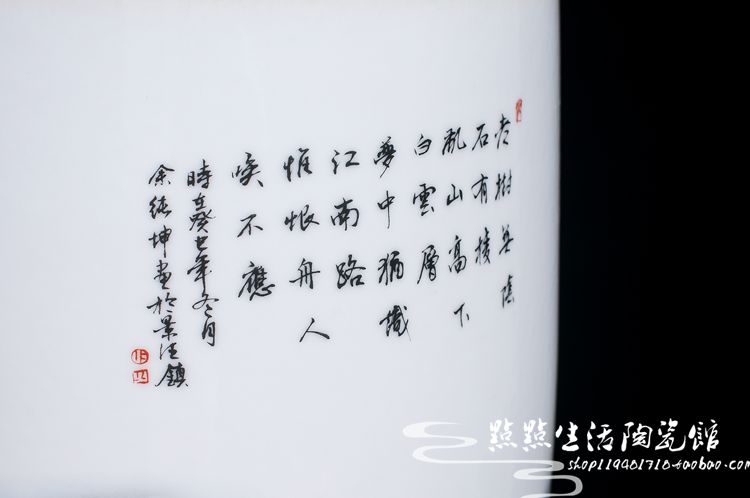 老樹無陰
石有稜
亂山高下
白雲層
夢中猶識
江南路
惟恨舟人
喚不應
時在癸巳年冬月
余純坤畫於景德鎮
點點生活陶瓷館
shop119481710.taobao.com